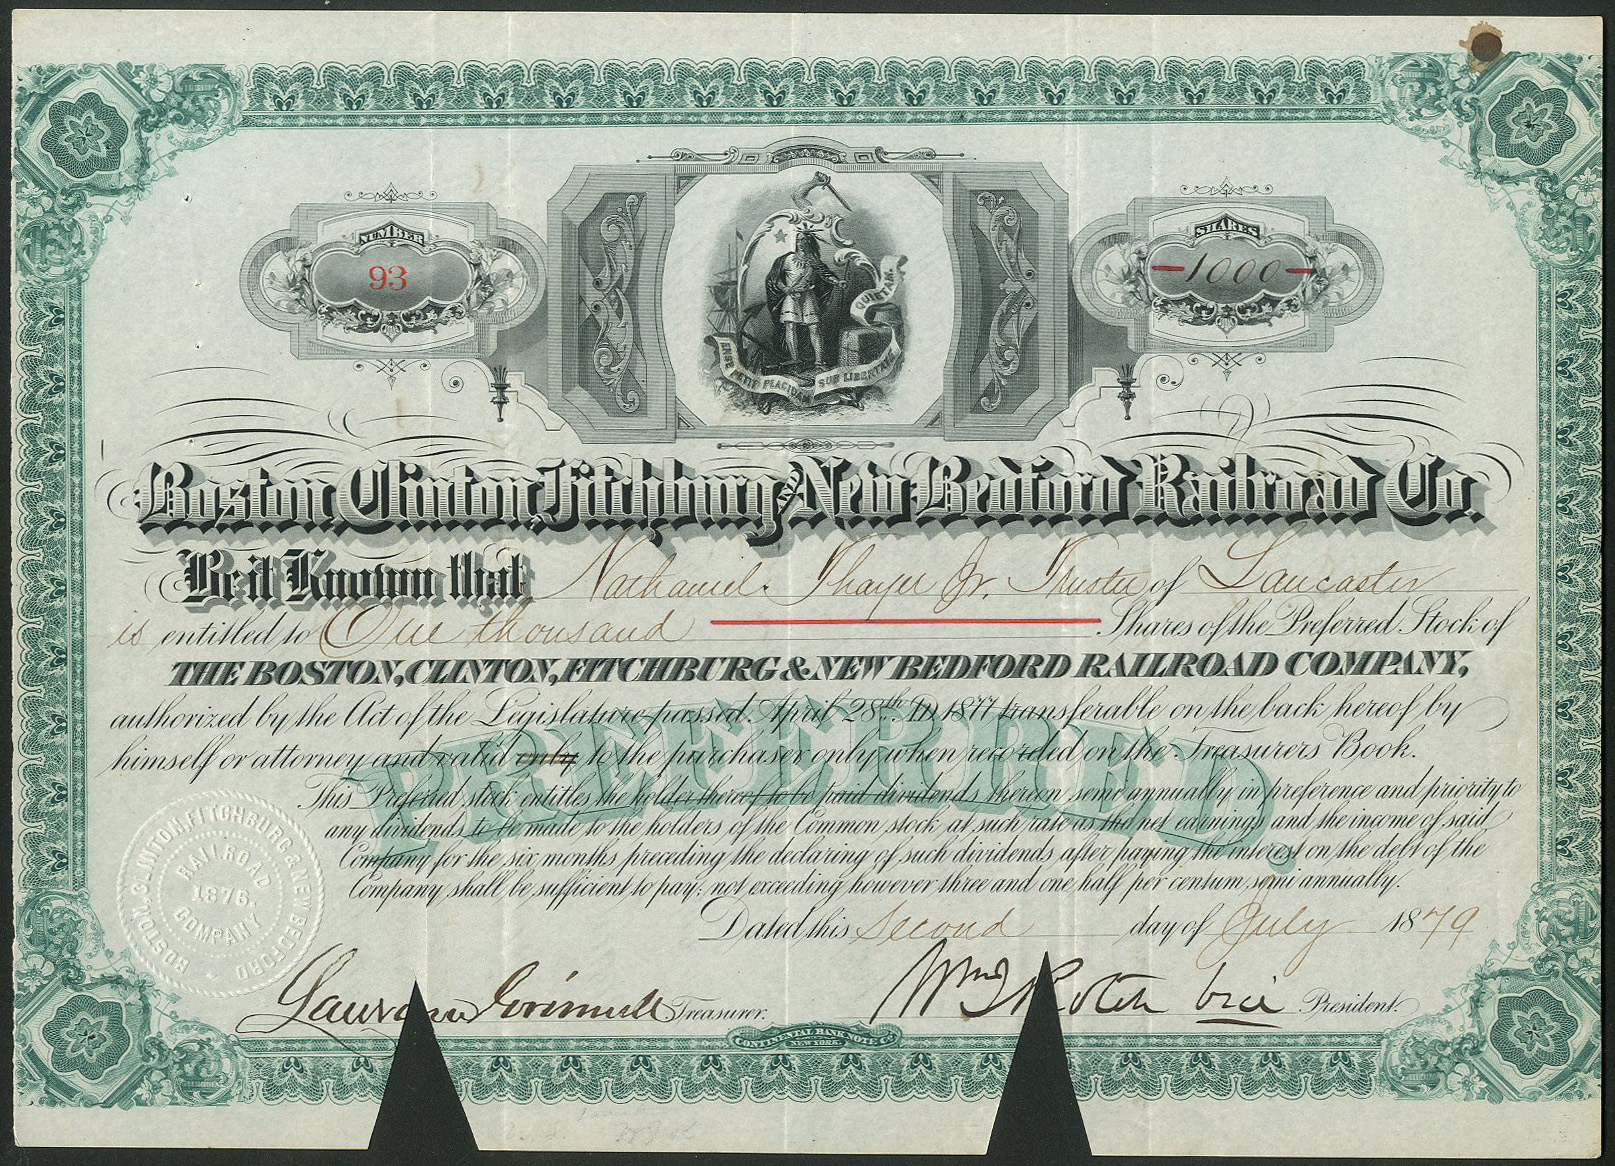 NUMBER
93
SHARES
1000
ENSE PETIT PLACIDAM SUB LIBERTATE QUIETAM.
Boston Clinton, Fitchburg AND New Bedford Railroad Co.
Be it Known that Nathaniel Thayer Jr. Trustee of Lancaster
is entitled to One thousand Shares of the Preferred Stock of
THE BOSTON, CLINTON, FITCHBURG & NEW BEDFORD RAILROAD COMPANY,
authorized by the Act of the Legislature passed April 28th. AD 1877 transferable on the back hereof by
himself or attorney and valid only to the purchaser only when recorded on the Treasurers Book.
PREFERRED.
This Preferred stock entitles the holder thereof to be paid dividends thereon semi annually in preference and priority to
any dividends to be made to the holders of the Common stock at such rate as the net earnings and the income of said
Company for the six months preceding the declaring of such dividends after paying the interest on the debt of the
Company shall be sufficient to pay; not exceeding however three and one half per centum semi annually.
BOSTON, CLINTON, FITCHBURG & NEW BEDFORD
RAILROAD
1876.
COMPANY
Dated this Second day of July 1879
Treasurer.
Wm vice President.
CONTINENTAL BANK NOTE Co.
NEW YORK.